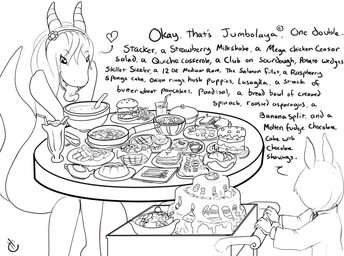 Okay, that's Jumbolaya®, One double
Stacker, a Strawberry Milkshake, a Mega chicken Ceasar
salad, a Quiche casserole, a Club on Sourdough, Potato wedges
Skillet Sizzler, a 12 oz Medium Rare, The Salmon fillet, a Raspberry
Sponge cake, Onion rings, Hush puppies, Lasagna, a stack of
butter wheat pancakes, a bread bowl of creamed
spinach, roasted asparagus, a
Banana Split, and a
Molten fudge Chocolate
Cake with
Chocolate
shavings.